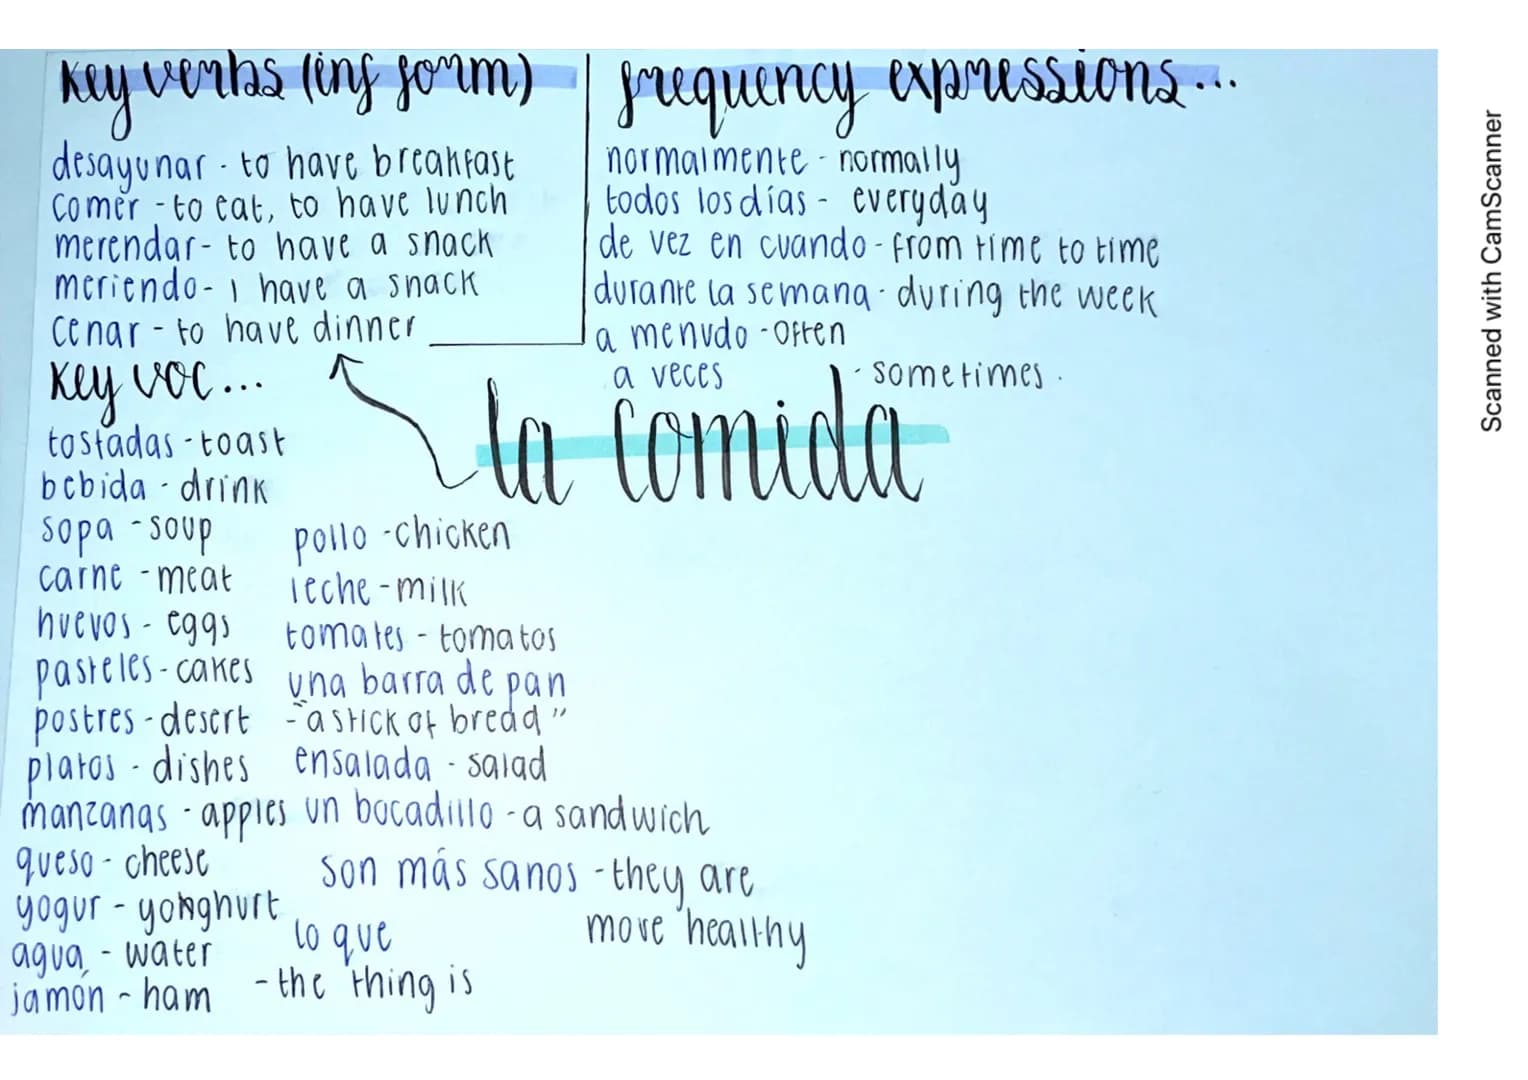 key verbs (inf form)
desayunar - to have breakfast
comer - to eat, to have lunch
merendar - to have a snack
meriendo - I have a snack
cenar - to have dinner
frequency expressions...
normalmente - normally
todos los días - everyday
de vez en cuando - from time to time
durante la semana - during the week
a menudo - often
a veces - sometimes.
la comida
key voc...
tostadas - toast
bebida - drink
sopa - soup
carne - meat
huevos - eggs
pasteles - cakes
postres - desert
platos - dishes
manzanas - apples
queso - cheese
yogur - yonghurt
agua - water
jamón - ham
pollo - chicken
leche - milk
tomates - tomatos
una barra de pan
- "a stick of bread"
ensalada - salad
un bocadillo - a sandwich
son más sanos - they are
more healthy
lo que
- the thing is
Scanned with CamScanner